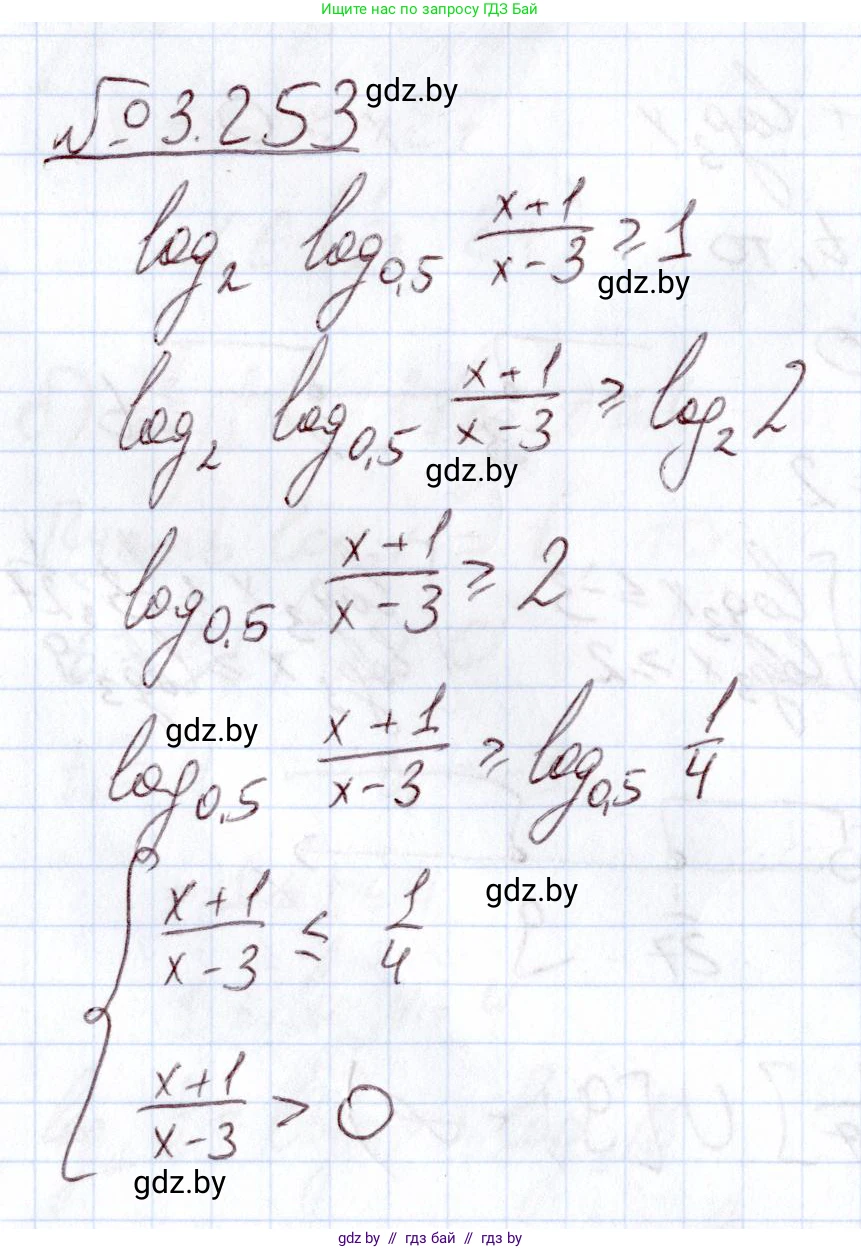 Ищите нас по запросу ГДЗ Бай
№ 3.253 gdz.by
log₂ log₀,₅ (x+1)/(x-3) ≥ 1
gdz.by
log₂ log₀,₅ (x+1)/(x-3) ≥ log₂ 2
gdz.by
log₀,₅ (x+1)/(x-3) ≥ 2
gdz.by
log₀,₅ (x+1)/(x-3) ≥ log₀,₅ 1/4
gdz.by
{ (x+1)/(x-3) ≤ 1/4
(x+1)/(x-3) > 0
gdz.by
gdz.by // гдз бай // гдз by